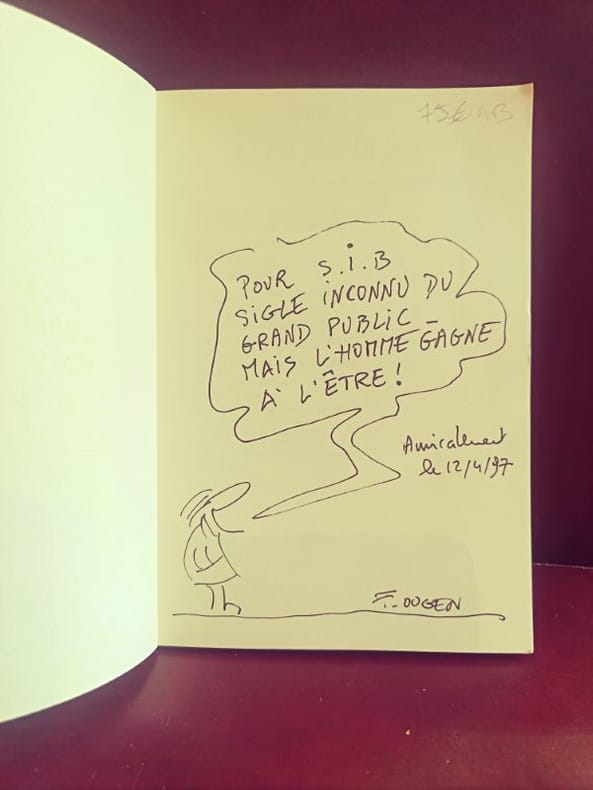 POUR S.I.B
SIGLE INCONNU DU
GRAND PUBLIC –
MAIS L'HOMME GAGNE
A' L'ÊTRE !
Amicalement
le 12/4/97